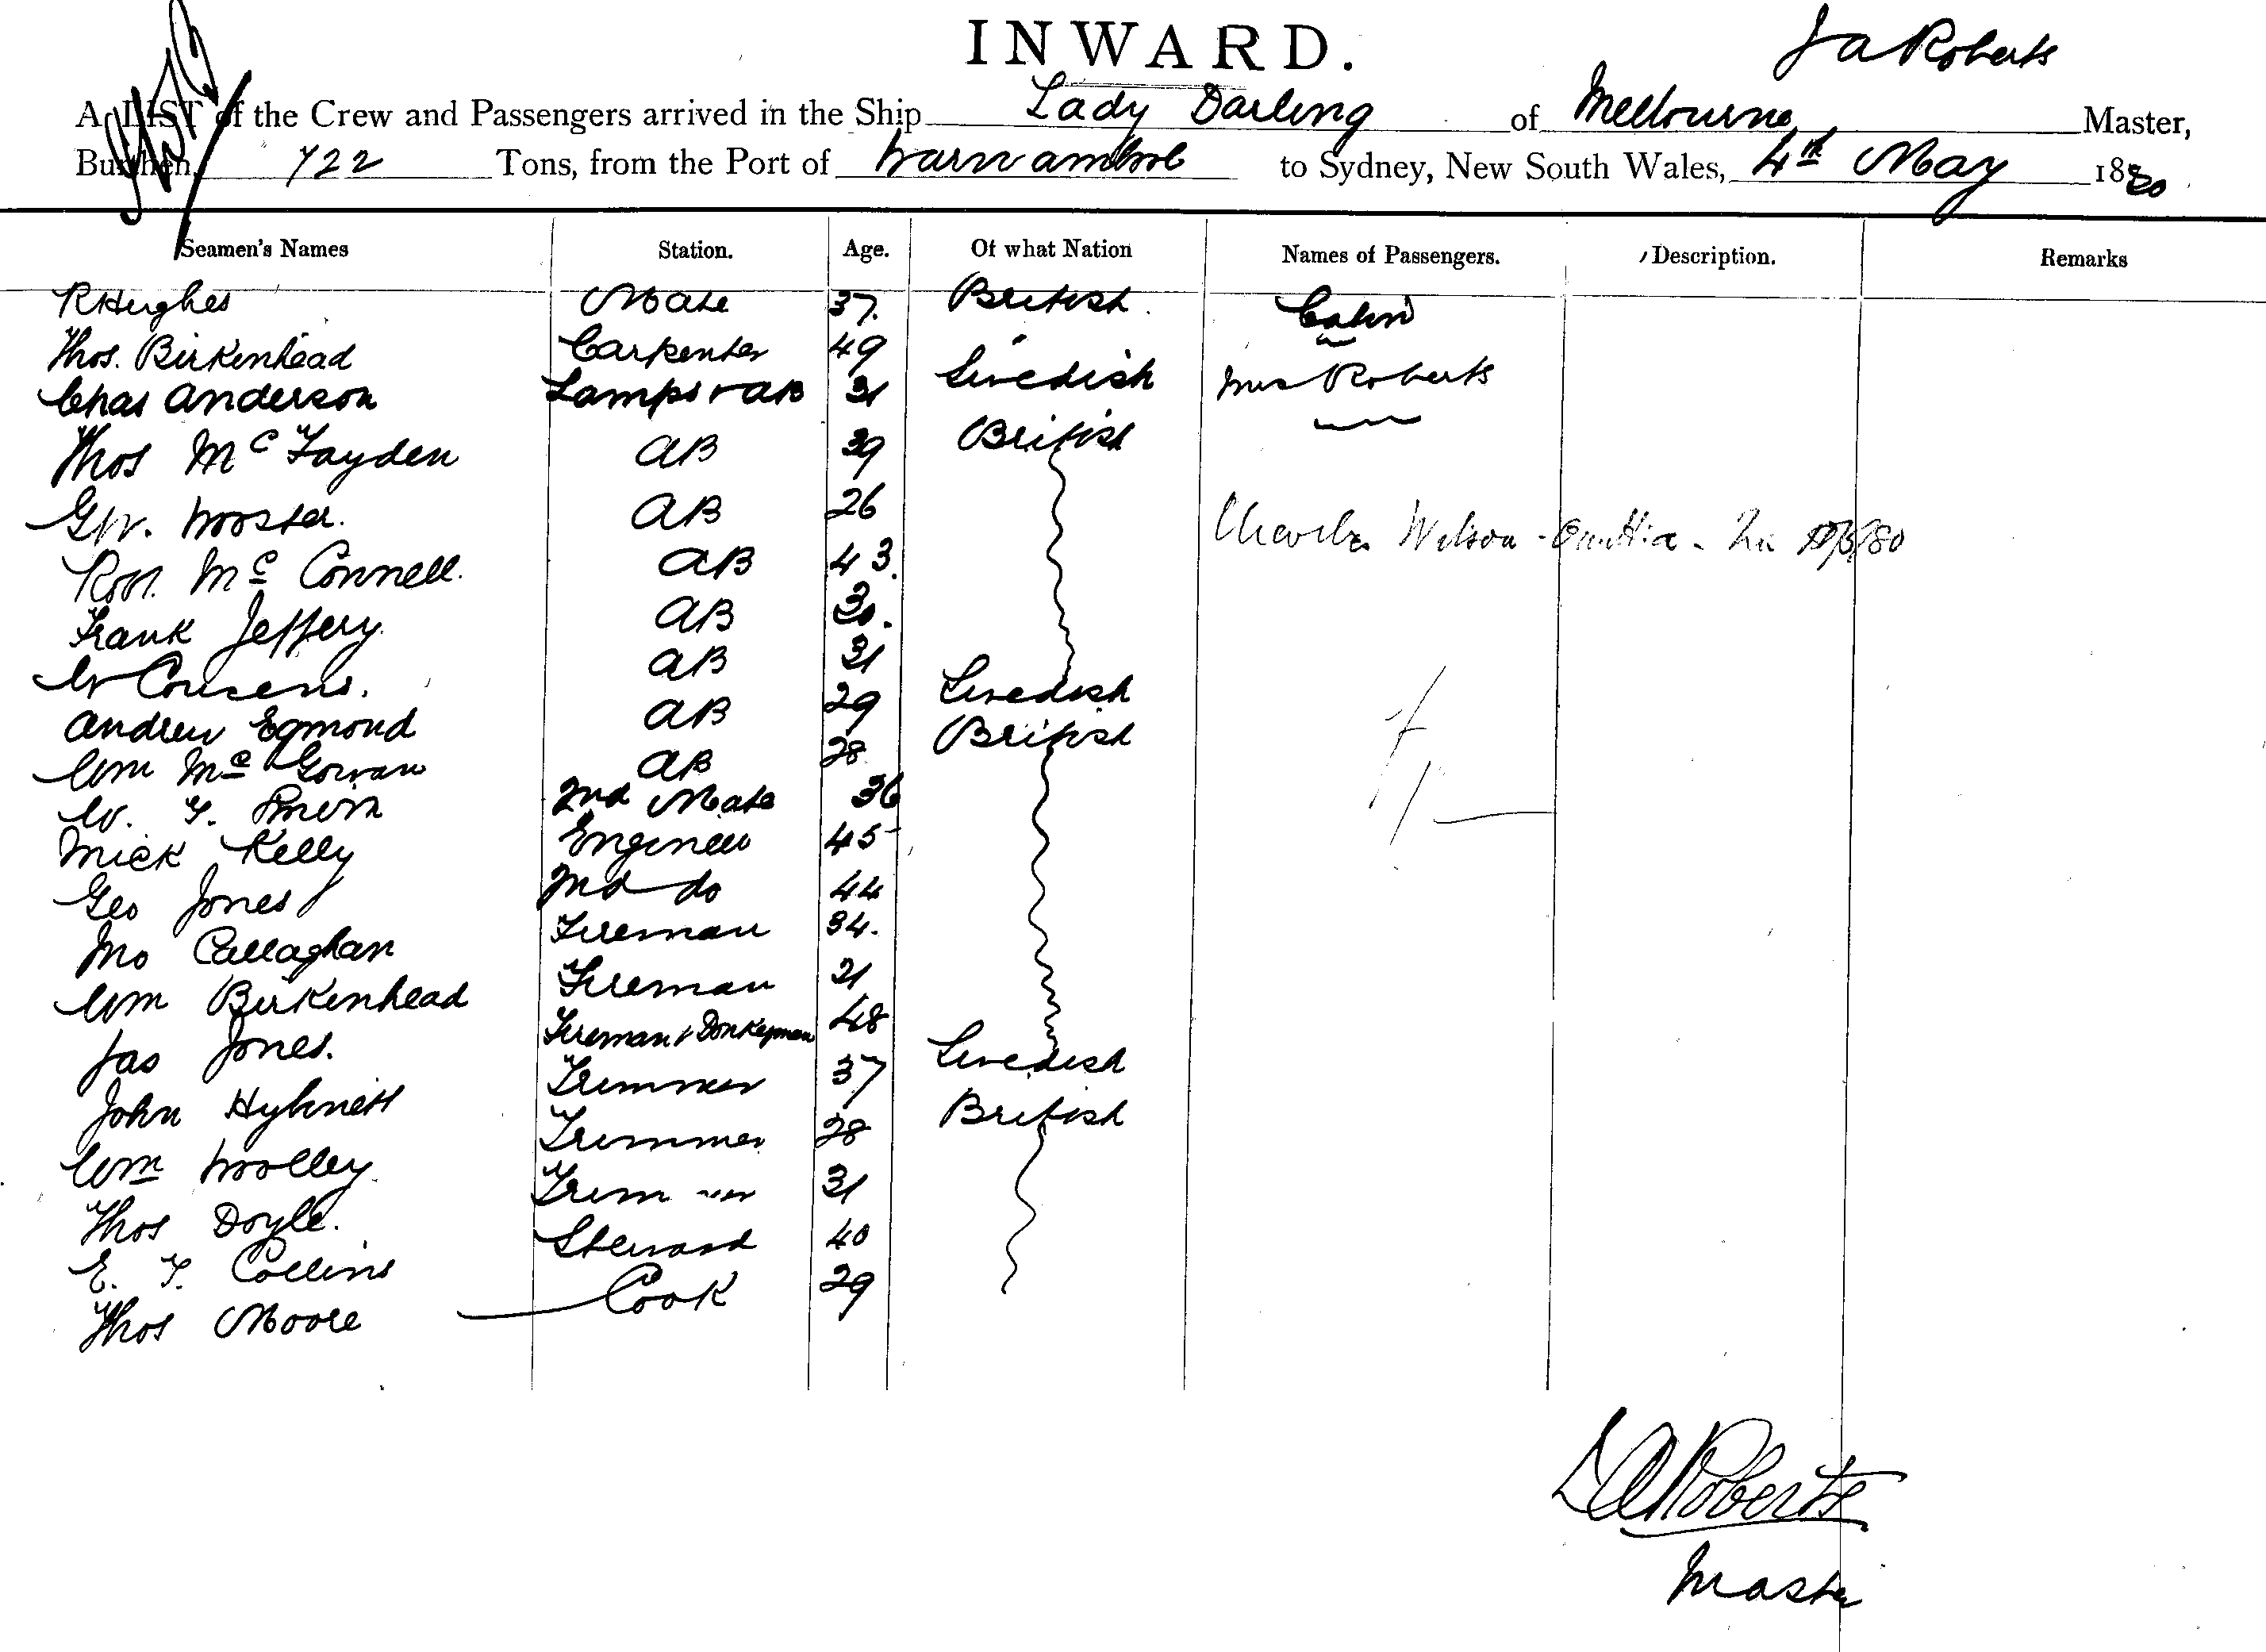 INWARD.
J a Roberts
A LIST of the Crew and Passengers arrived in the Ship Lady Darling of Melbourne Master,
Burthen, 722 Tons, from the Port of Warrnambool to Sydney, New South Wales, 4th May 1880
Seamen's Names Station. Age. Of what Nation Names of Passengers. Description. Remarks
R Hughes Mate 37. British Cabin
Thos. Birkenhead Carpenter 49 "
Chas Anderson Lamps & AB 31 Swedish Mrs Roberts
Thos McFayden AB 39 British
G W. Wooster. AB 26
Robt. Mc Connell. AB 43. Charles Wilson
Frank Jeffery. AB 30.
W Cousens. AB 31
Andrew Egmond AB 29 Swedish
Wm Mc Gowan AB 28 British
W. F. Smith 2nd Mate 36
Mick Kelly Engineer 45
Geo Jones 2nd do 44
Callaghan Fireman 34.
Wm Birkenhead Fireman 21
Jas Jones. Fireman & Donkeyman 48
John Trimmer 37 Swedish
Wm Woolley. Trimmer 28 British
Thos Doyle. Trimmer 31
E. F. Collins Steward 40
Thos Moore Cook 29
J A Roberts
Master